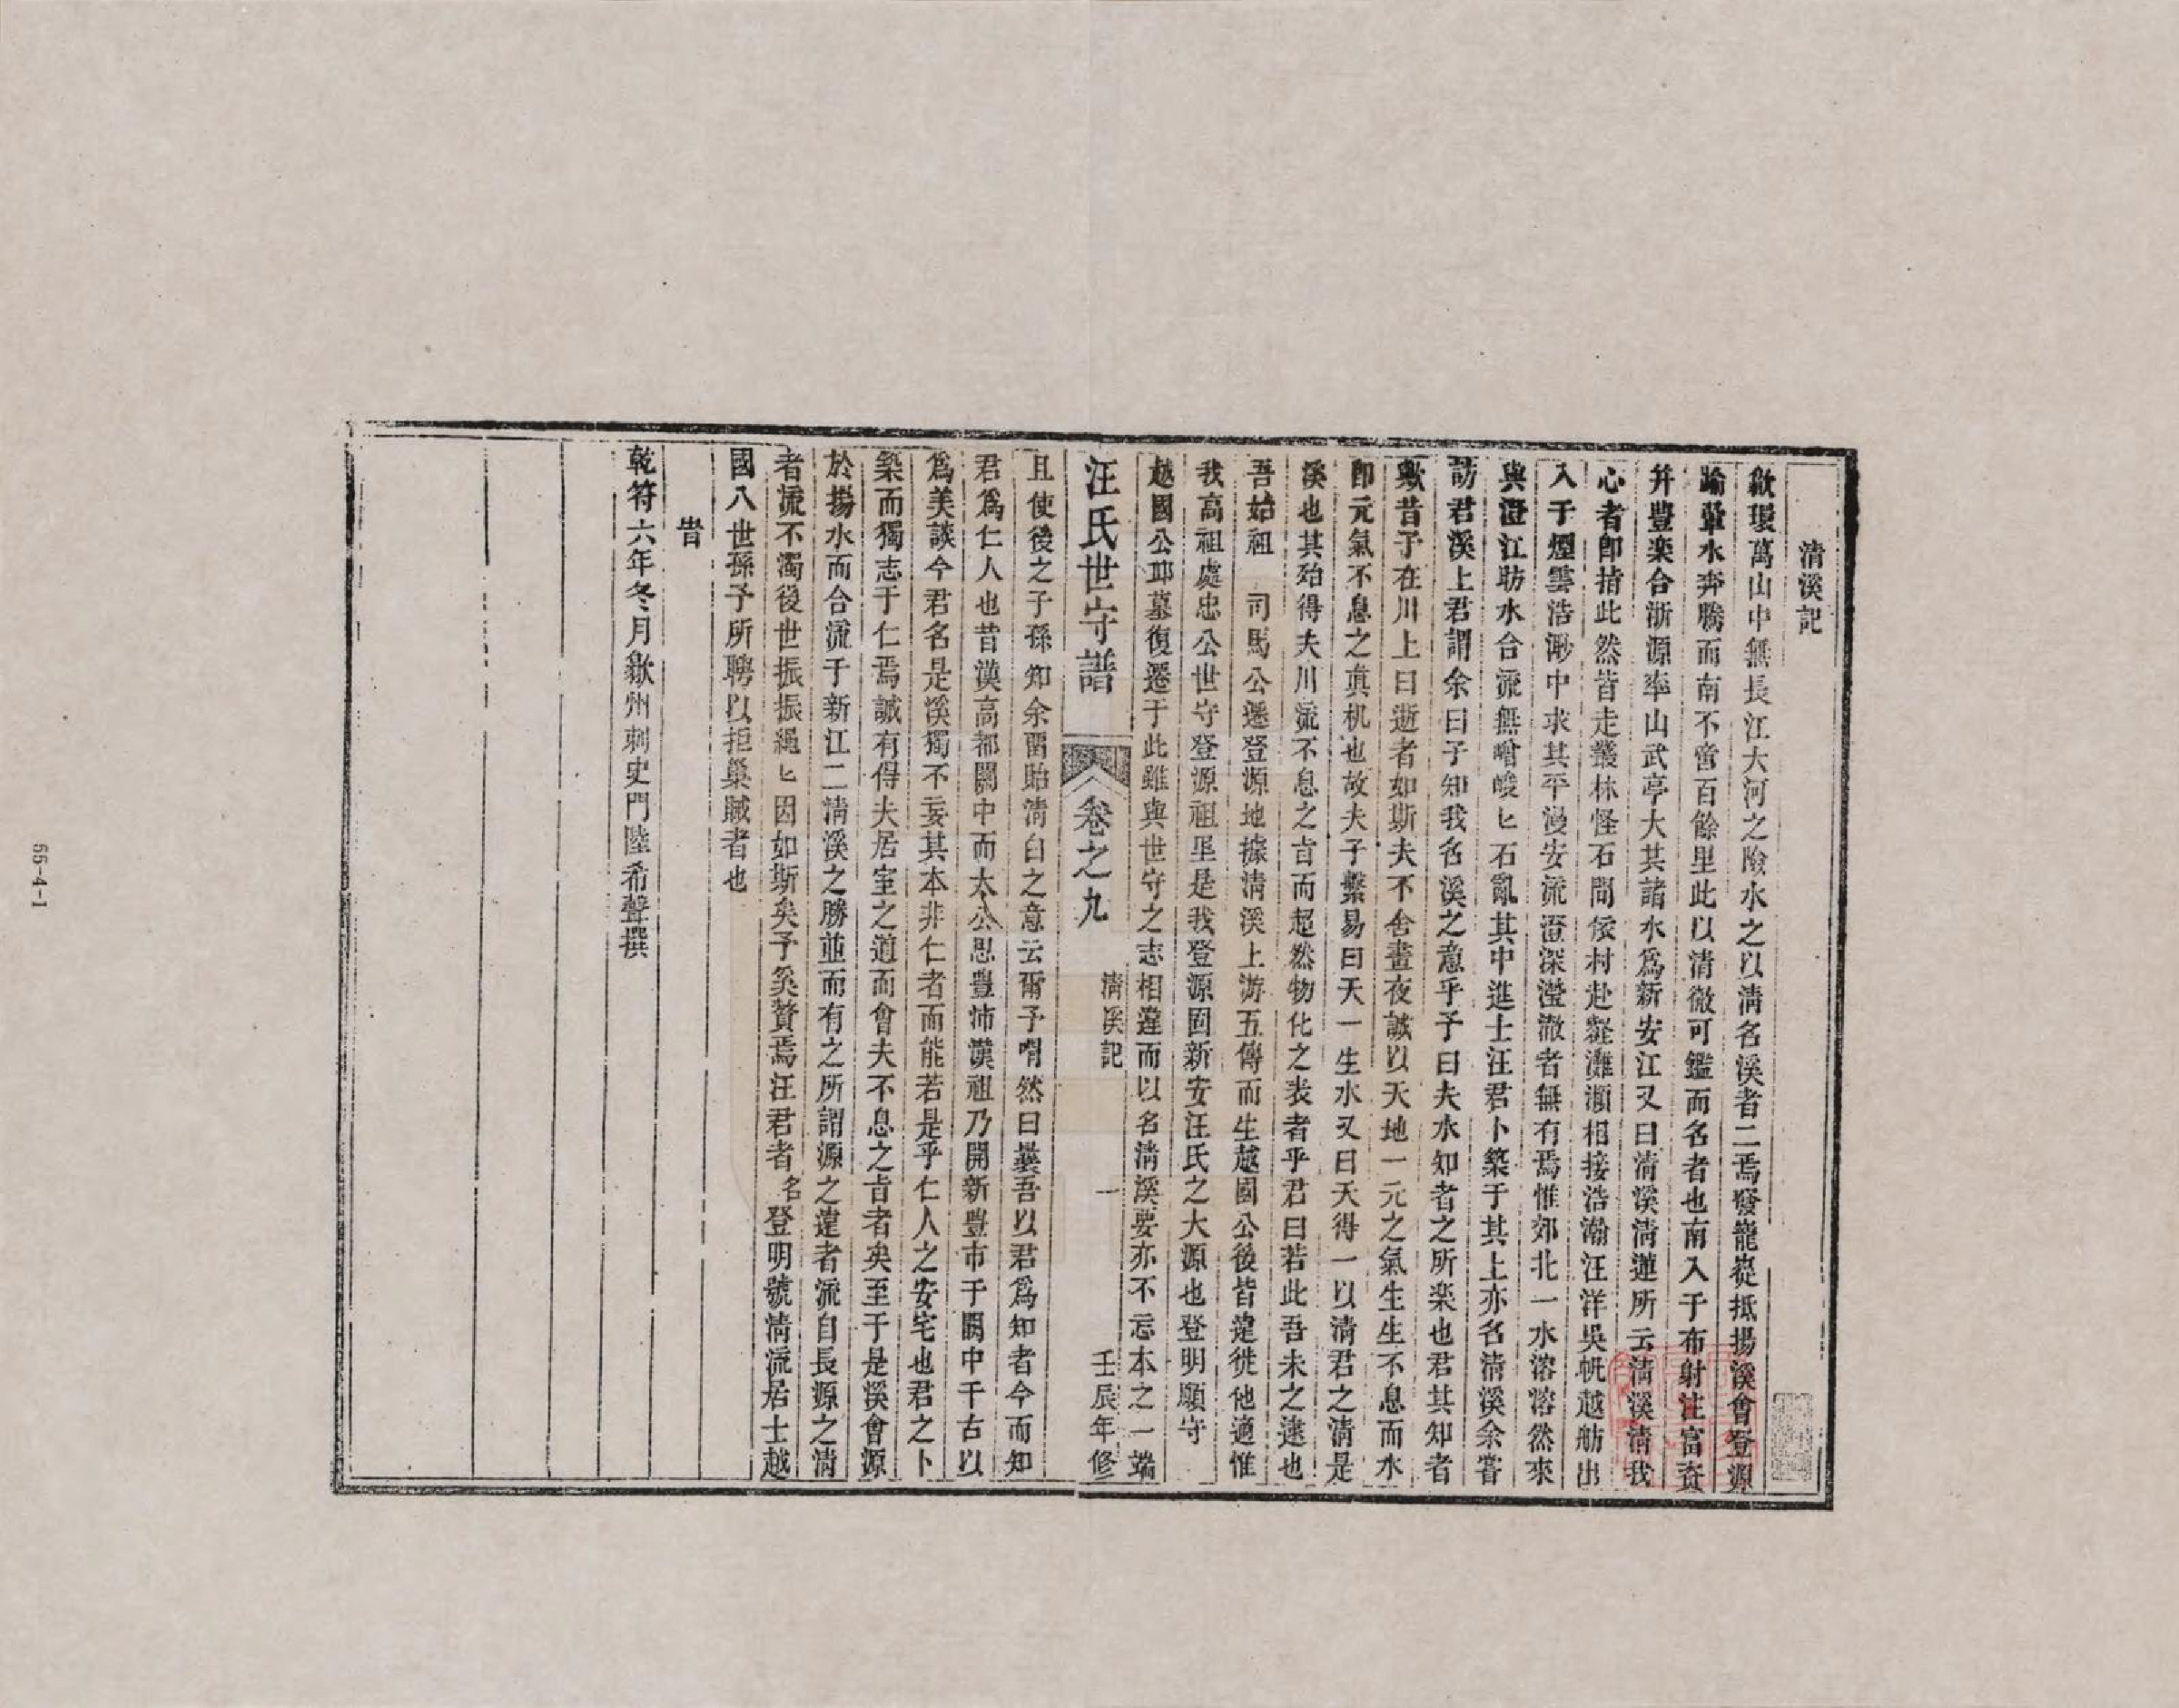 清溪記
歙環萬山中無長江大河之險水之以淸名溪者二焉發龍𡽀抵揚溪會登源
踰翬水奔騰而南不啻百餘里此以清徹可鑑而名者也南入于布射注富資
并豐樂合浙源率山武亭大其諸水爲新安江又曰清溪淸漣所云淸溪淸我
心者卽指此然皆走叢林怪石間依村赴壑灘瀨相接浩瀚汪洋吳帆越舫出
入于煙雲浩渺中求其平漫安流澄深瀅澈者無有焉惟郊北一水溶溶然來
與澄江昉水合流無嶒崚匕石亂其中進士汪君卜築于其上亦名清溪余嘗
訪君溪上君謂余曰子知我名溪之意乎予曰夫水知者之所樂也君其知者
歟昔子在川上曰逝者如斯夫不舍晝夜誠以天地一元之氣生生不息而水
卽元氣不息之眞机也故夫子繫易曰天一生水又曰天得一以清君之淸是
溪也其殆得夫川流不息之旨而超然物化之表者乎君曰若此吾未之逮也
吾始祖　司馬公遷登源地據清溪上游五傳而生越國公後皆違徙他適惟
我高祖處忠公世守登源祖里是我登源固新安汪氏之大源也登明願守
越國公邱墓復遷于此雖與世守之志相違而以名淸溪要亦不忘本之一端
汪氏世守譜　卷之九　淸溪記　一　壬辰年修
且使後之子孫知余留貽淸白之意云爾予喟然曰曩吾以君爲知者今而知
君爲仁人也昔漢高都關中而太公思豐沛漢祖乃開新豐市于關中千古以
爲美談今君名是溪獨不妄其本非仁者而能若是乎仁人之安宅也君之卜
築而獨志于仁焉誠有得夫居室之道而會夫不息之旨者矣至于是溪會源
於揚水而合流于新江二淸溪之勝並而有之所謂源之遠者流自長源之淸
者流不濁後世振振繩匕因如斯矣予奚贅焉汪君者名登明號淸流居士越
國八世孫予所聘以拒巢賊者也
旹
乾符六年冬月歙州刺史門陸希聲撰
55-4-1